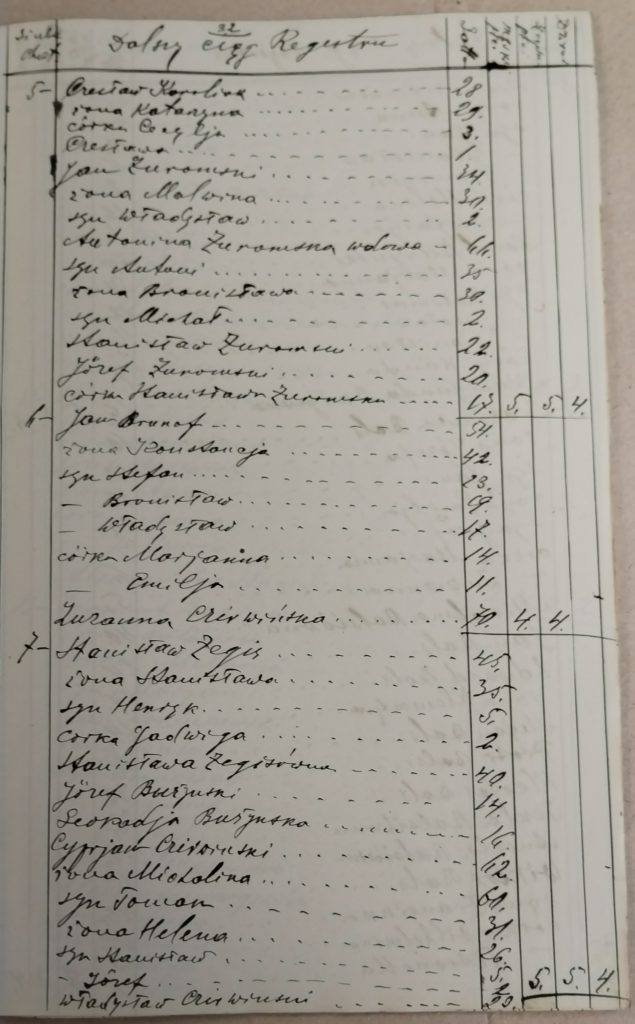 32
Liczba Chat Dalszy ciąg Regestru Lata Męzka pł. Żeńska pł. Dzieci
5- Czesław Karolina 28
żona Katarzyna 29.
córka Cecylja 3.
Czesława 1.
Jan Żuromski 34
żona Malwina 30.
syn Władysław 2.
Antonina Żuromska wdowa 66.
syn Antoni 35
żona Bronisława 30.
syn Michał 2.
Stanisław Żuromski 22.
Józef Żuromski 20.
córka Stanisława Żuromska 17. 5. 5. 4.
6- Jan 54.
żona Konstancja 42.
syn Stefan 23.
— Bronisław 19.
— Władysław 17.
córka Marjanna 14.
— Emilja 11.
Zuzanna Czerwińska 70. 4. 4.
7- Stanisław Żegis 45.
żona Stanisława 35.
syn Henryk 5.
córka Jadwiga 2.
Stanisława Żegisówna 40.
Józef Bużynski 14.
Leokadja Bużynska 16.
Cyprjan Czerwinski 62.
żona Michalina 60.
syn Roman 31.
żona Helena 26.
syn Stanisław 5.
- Józef 5. 5. 4.
Władysław Czerwinski 29.